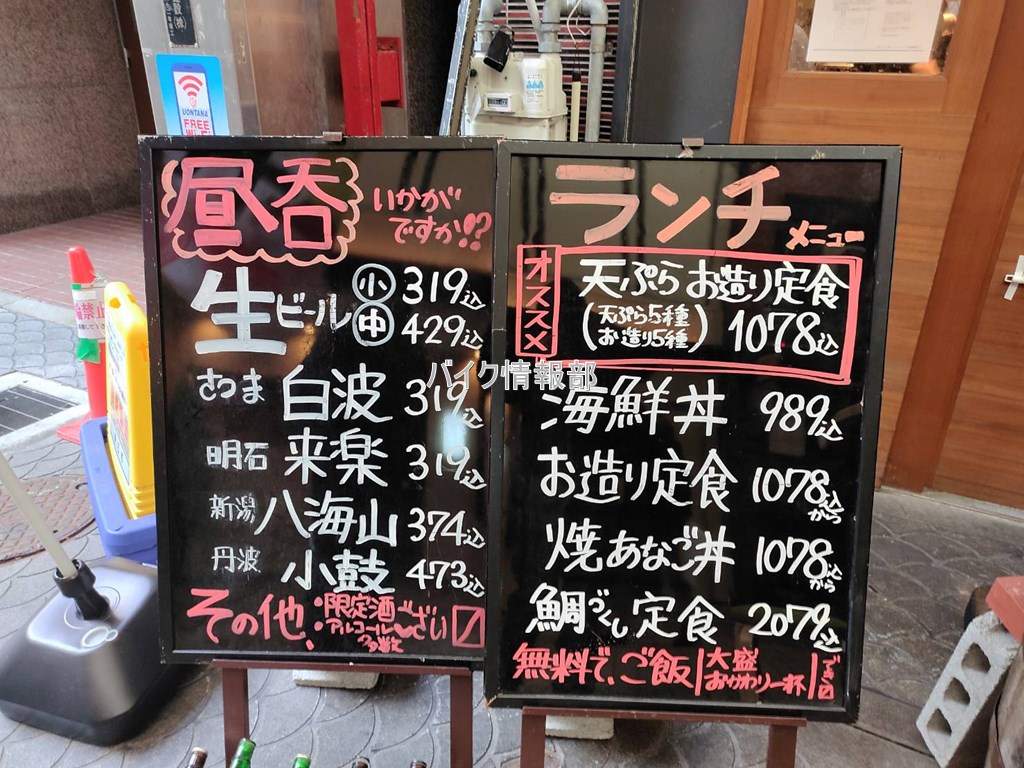 UONTANA
FREE
Wi-Fi
昼呑
いかが
ですか!?
生ビール 小 319込
中 429込
さつま 白波 319込
明石 来楽 319込
新潟 八海山 374込
丹波 小鼓 473込
その他
・限定酒
・アルコール
多数
ござい〼
ランチ
メニュー
オススメ
天ぷらお造り定食
(天ぷら5種
お造り5種)
1078込
海鮮丼 989込
お造り定食 1078込から
焼あなご丼 1078込から
鯛づくし定食 2079込
無料で、ご飯
大盛
おかわり一杯
バイク情報部